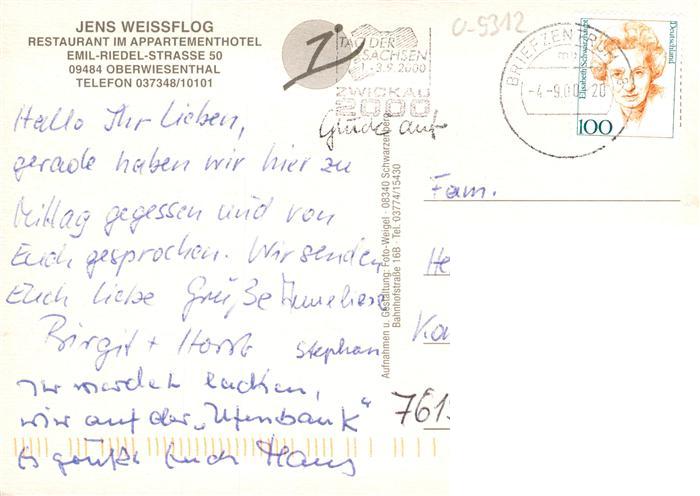 JENS WEISSFLOG
RESTAURANT IM APPARTEMENTHOTEL
EMIL-RIEDEL-STRASSE 50
09484 OBERWIESENTHAL
TELEFON 037348/10101
Hallo Ihr Lieben,
gerade haben wir hier zu
Mittag gegessen und von
Euch gesprochen. Wir senden
Euch liebe Grüße Anneliese
Birgit + Horst Stephan
Ihr werdet lachen,
wir auf der „Ofenbank“
Es grüßt Euch Hans
TAG DER
SACHSEN
-3.9.2000
ZWICKAU
2000
Glück auf
Aufnahmen u. Gestaltung: Foto-Weigel · 08340 Schwarzenberg
Bahnhofstraße 16B · Tel. 03774/15430
0-9312
BRIEFZENTRUM
-4.-9.00-20
Elisabeth Schwarzhaupt
Deutschland
100
Fam.
He
Ka
761